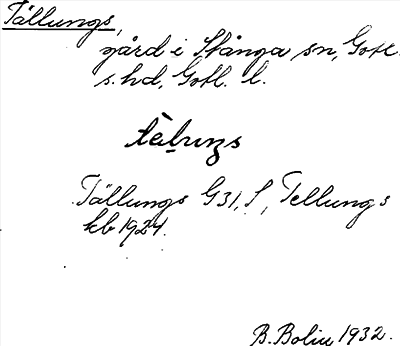 Tällungs,
gård i Stånga sn, Gotl.
s. hd, Gotl. l.
Tällungs G31, S, Tellungs
kb 1924.
B. Bolin 1932.